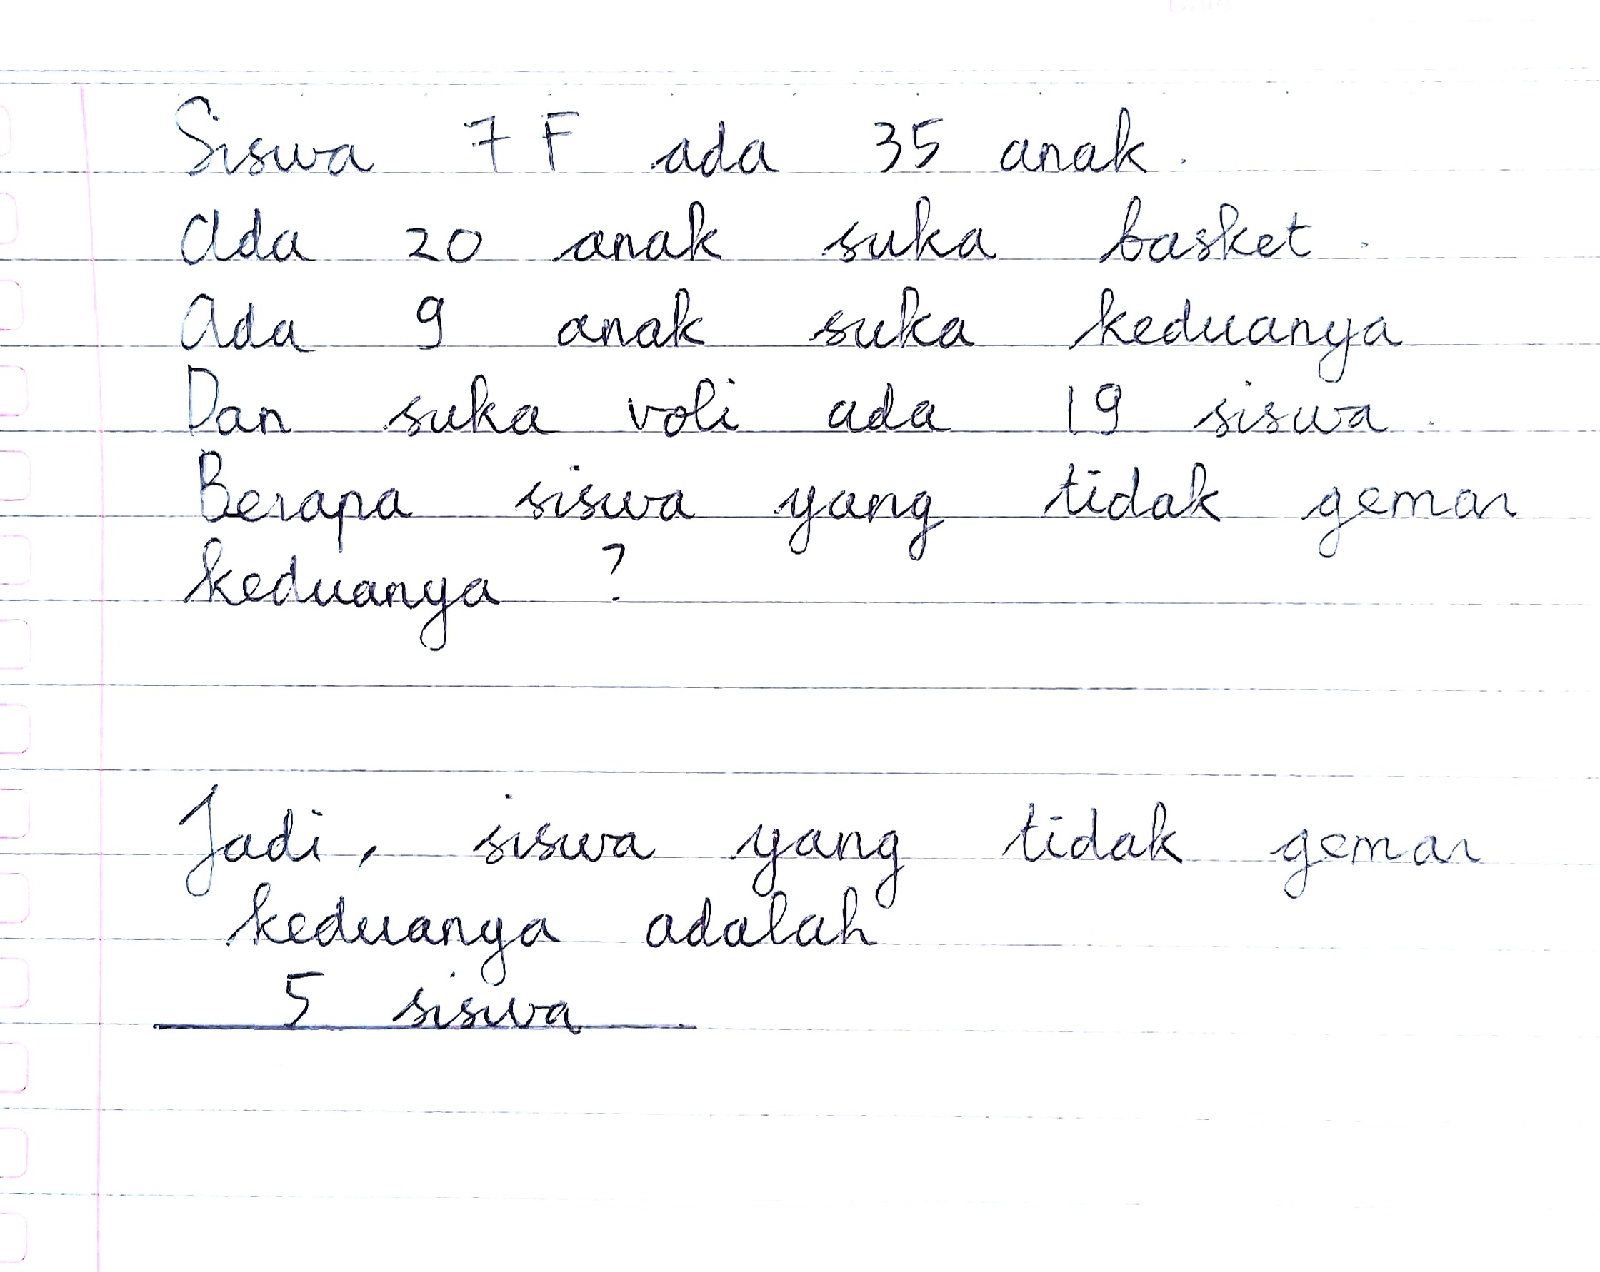 Siswa 7F ada 35 anak.
Ada 20 anak suka basket.
Ada 9 anak suka keduanya
Dan suka voli ada 19 siswa.
Berapa siswa yang tidak gemar
keduanya ?
Jadi, siswa yang tidak gemar
keduanya adalah
5 siswa